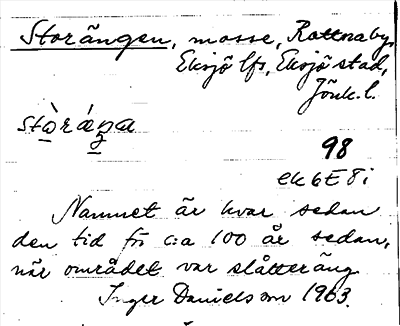 Storängen, mosse, Rottnaby,
Eksjö lfs, Eksjö stad,
Jönk. l.
stòráŋa
98
ek 6E 8i
Namnet är kvar sedan
den tid för c:a 100 år sedan,
när området var slåtteräng
Inger Danielsson 1963.